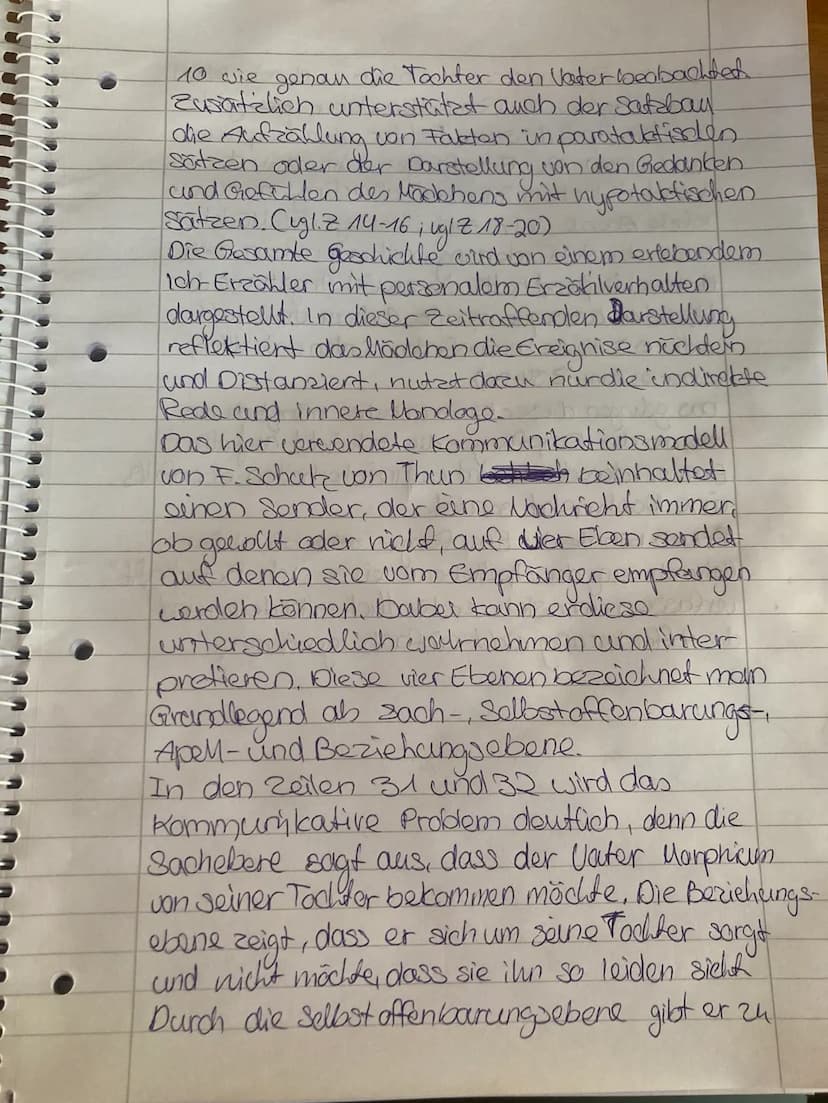 10 wie genau die Tochter den Vater beobachtet
Zusätzlich unterstützt auch der Satzbau
die Aufzählung von Fakten in parataktischen
Sätzen oder der Darstellung von den Gedanken
und Gefühlen des Mädchens mit hypotaktischen
Sätzen. (vgl. Z 14-16 ; vgl Z 18-20)
Die Gesamte Geschichte wird von einem erlebendem
Ich-Erzähler mit personalem Erzählverhalten
dargestellt. In dieser Zeitraffenden Darstellung
reflektiert das Mädchen die Ereignise nüchtern
und Distanziert, nutzt dazu nur die indirekte
Rede und innere Monologe.
Das hier verwendete Kommunikationsmodell
von F. Schulz von Thun beinhaltet
einen Sender, der eine Nachricht immer,
ob gewollt oder nicht, auf vier Eben sendet
auf denen sie vom Empfänger empfangen
werden können. Dabei kann er diese
unterschiedlich wahrnehmen und inter
pretieren. Diese vier Ebenen bezeichnet man
Grundlegend als Sach-, Selbstoffenbarungs-,
Apell- und Beziehungsebene.
In den Zeilen 31 und 32 wird das
Kommunikative Problem deutlich, denn die
Sachebene sagt aus, dass der Vater Morphium
von seiner Tochter bekommen möchte. Die Beziehungs-
ebene zeigt, dass er sich um seine Tochter sorgt
und nicht möchte, dass sie ihn so leiden sieht
Durch die Selbstoffenbarungsebene gibt er zu